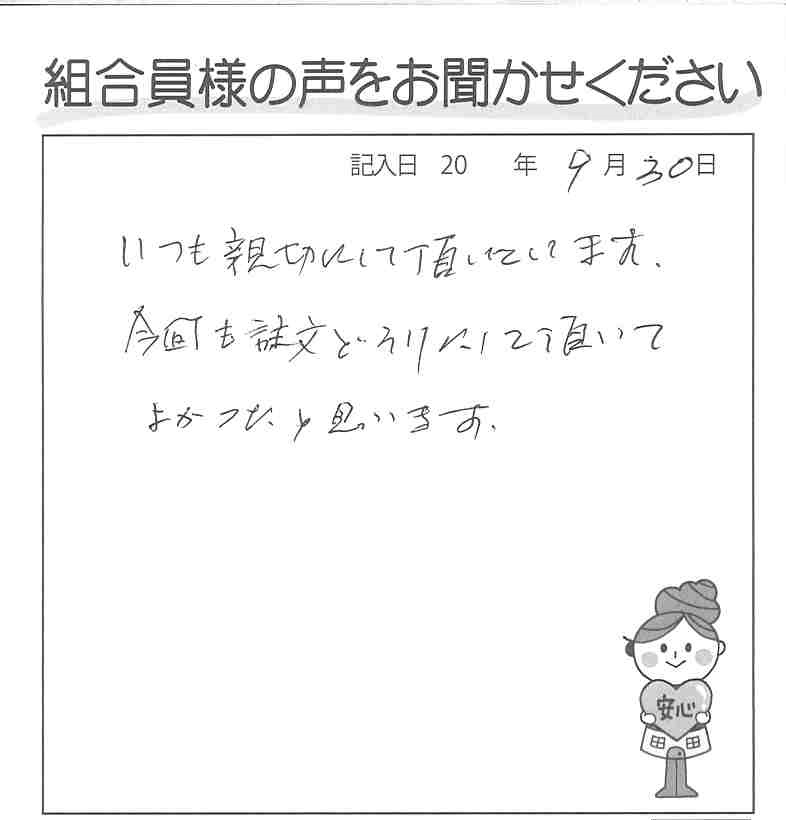 組合員様の声をお聞かせください
記入日 20 年 9月30日
いつも親切にして頂いています、
今回も註文どうりにして頂いて
よかったと思います、
安心